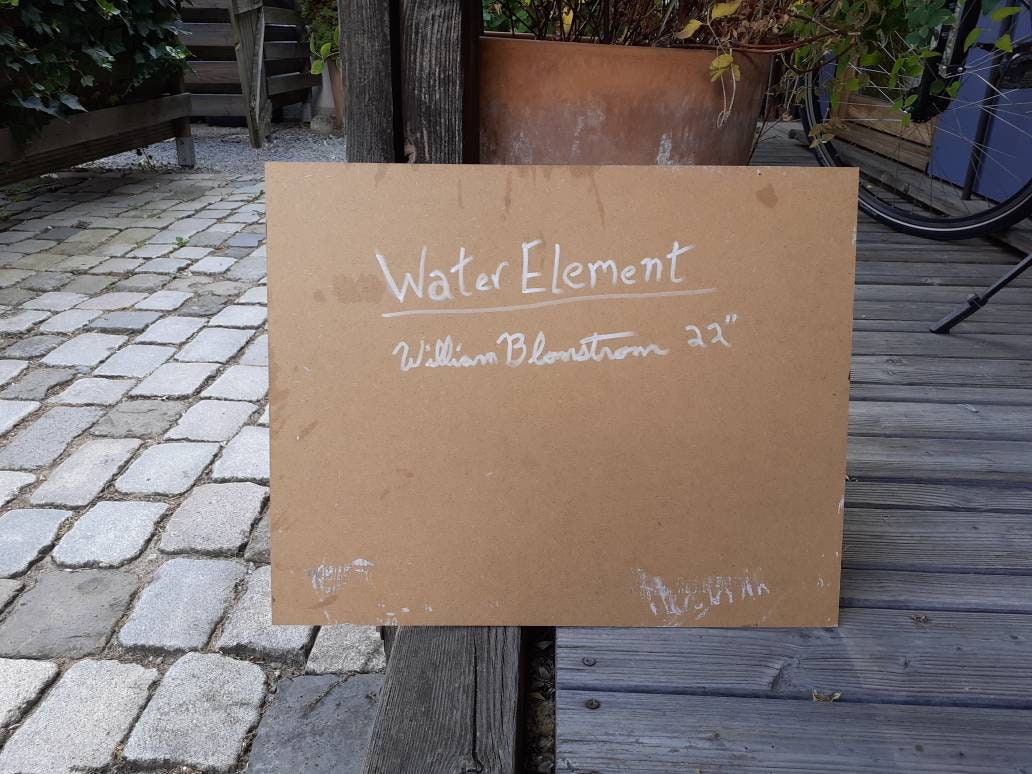 Water Element
William Blomstrom 22"